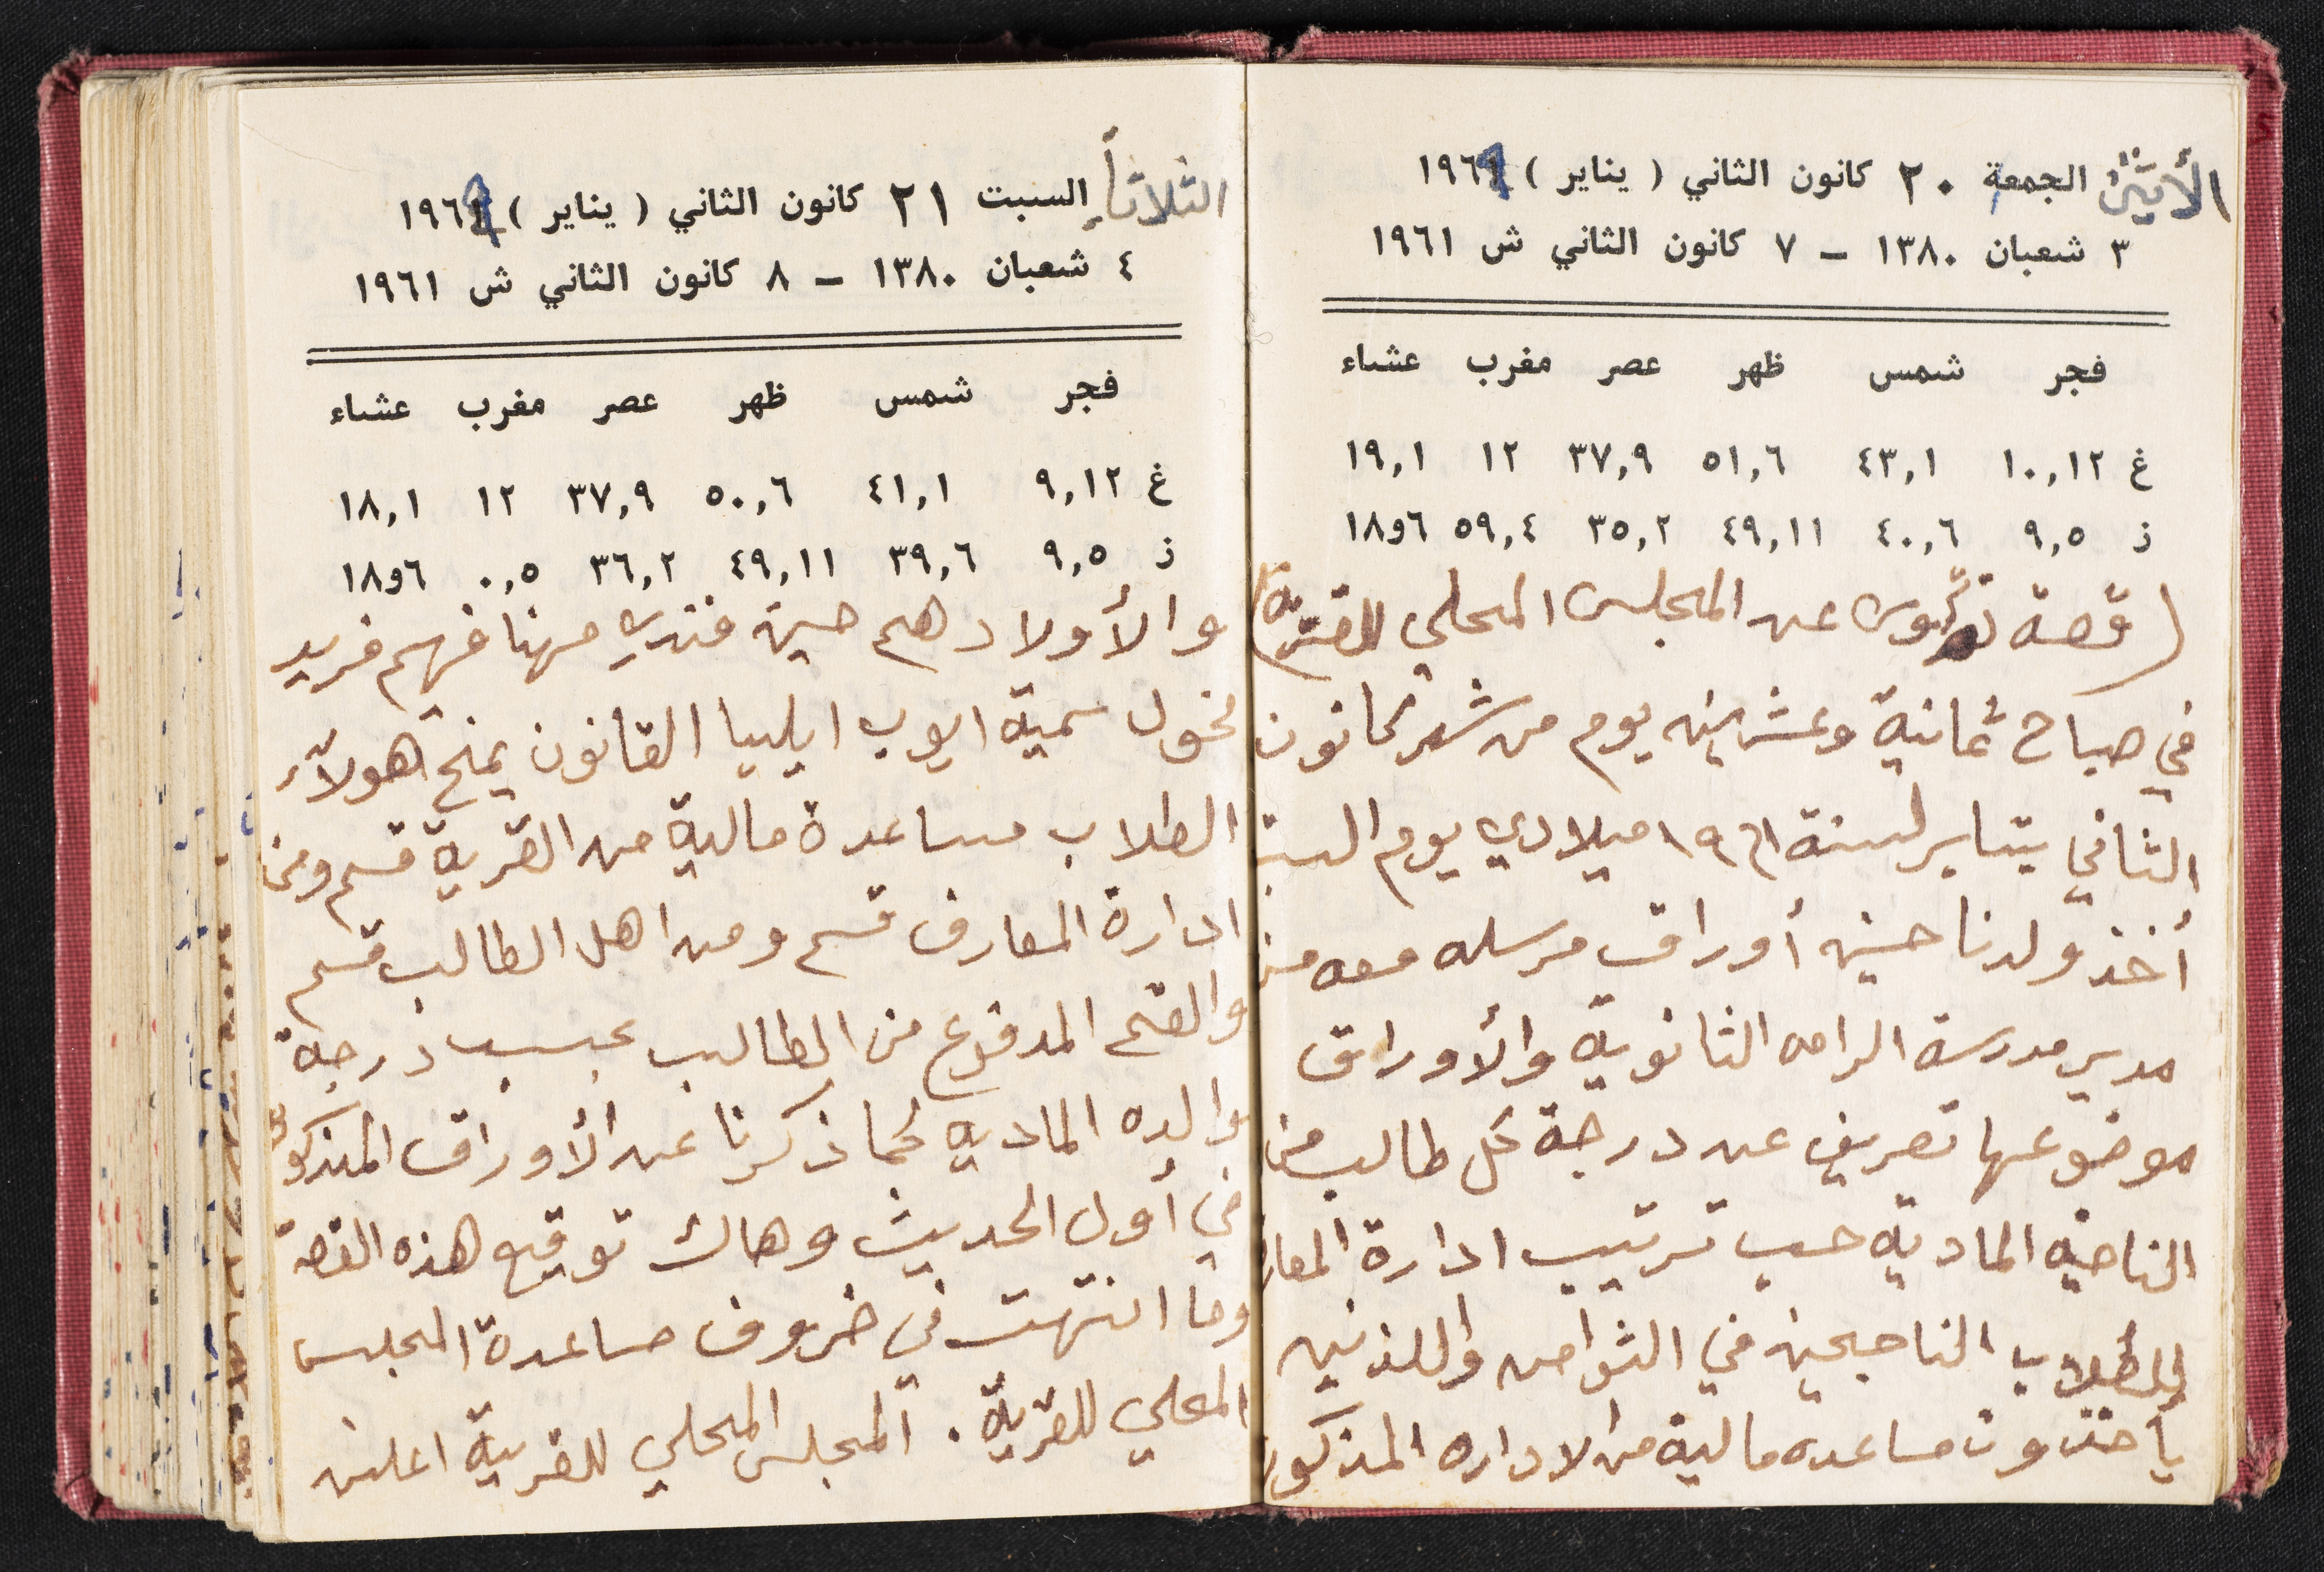 الأثنين الجمعة ٢٠ كانون الثاني ( يناير ) ١٩٦١
٣ شعبان ١٣٨٠ – ٧ كانون الثاني ش ١٩٦١
فجر شمس ظهر عصر مغرب عشاء
غ ١٠,١٢ ٤٣,١ ٥١,٦ ٣٧,٩ ١٢ ١٩,١
ز ٩,٥ ٤٠,٦ ٤٩,١١ ٣٥,٢ ٥٩,٤ ٦و١٨
( قصة عن المجلس المحلي للقرية )
في صباح ثمانية وعشرين يوم من شهر كانون
الثاني يناير لسنة ١٩٦١ ميلادي يوم السبت
أخذ ولدنا حسين أوراق مرسله معه من
مدير مدرسة الرامه الثانوية والأوراق
موضوعها تعريف عن درجة كل طالب من
الناحية المادية حسب ترتيب ادارة المعار
للطلاب الناجحين في الثوامن واللذين
يأخذون مساعده مالية من الاداره المذكور
الثلاثاء السبت ٢١ كانون الثاني ( يناير ) ١٩٦١
٤ شعبان ١٣٨٠ – ٨ كانون الثاني ش ١٩٦١
فجر شمس ظهر عصر مغرب عشاء
غ ٩,١٢ ٤١,١ ٥٠,٦ ٣٧,٩ ١٢ ١٨,١
ز ٩,٥ ٣٩,٦ ٤٩,١١ ٣٦,٢ ٠,٥ ٦و١٨
والأولاد هم حسين مهنا فهيم فريد
مخول سمية ايوب ايليا القانون يمنح هولآء
الطلاب مساعدة مالية من القرية قسم ومن
ادارة المعارف قسم ومن اهل الطالب قسم
والقسم المدفوع من الطالب بحسب درجة
والده الماديه كما ذكرنا عن الأوراق المذكور
في أول الحديث وهاك توقيع هذه القصة
وما انتهت في ضروف مساعدة المجلس
المحلي للقرية . المجلس المحلي للقرية اعلن